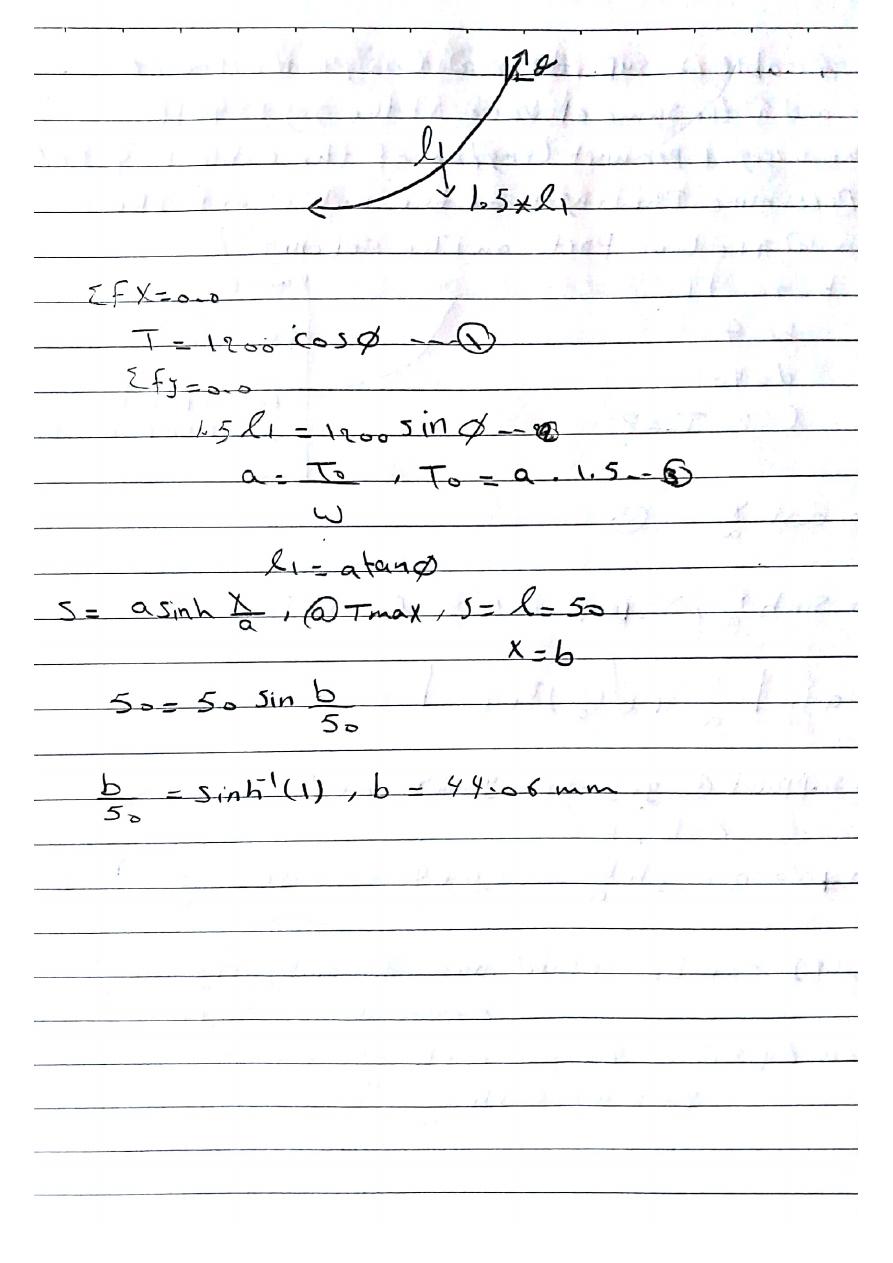 θ
l1
1.5*l1
ΣfX=0.0
T = 1200 cosφ --- ①
Σfy=0.0
1.5 l1 = 1200 sin φ -- ②
a = To/w , To = a . 1.5 -- ③
l1 = a tanφ
S = a sinh x/a , @ Tmax , S = l = 50
x = b
50 = 50 sin b/50
b/50 = sinh⁻¹(1) , b = 44.06 mm